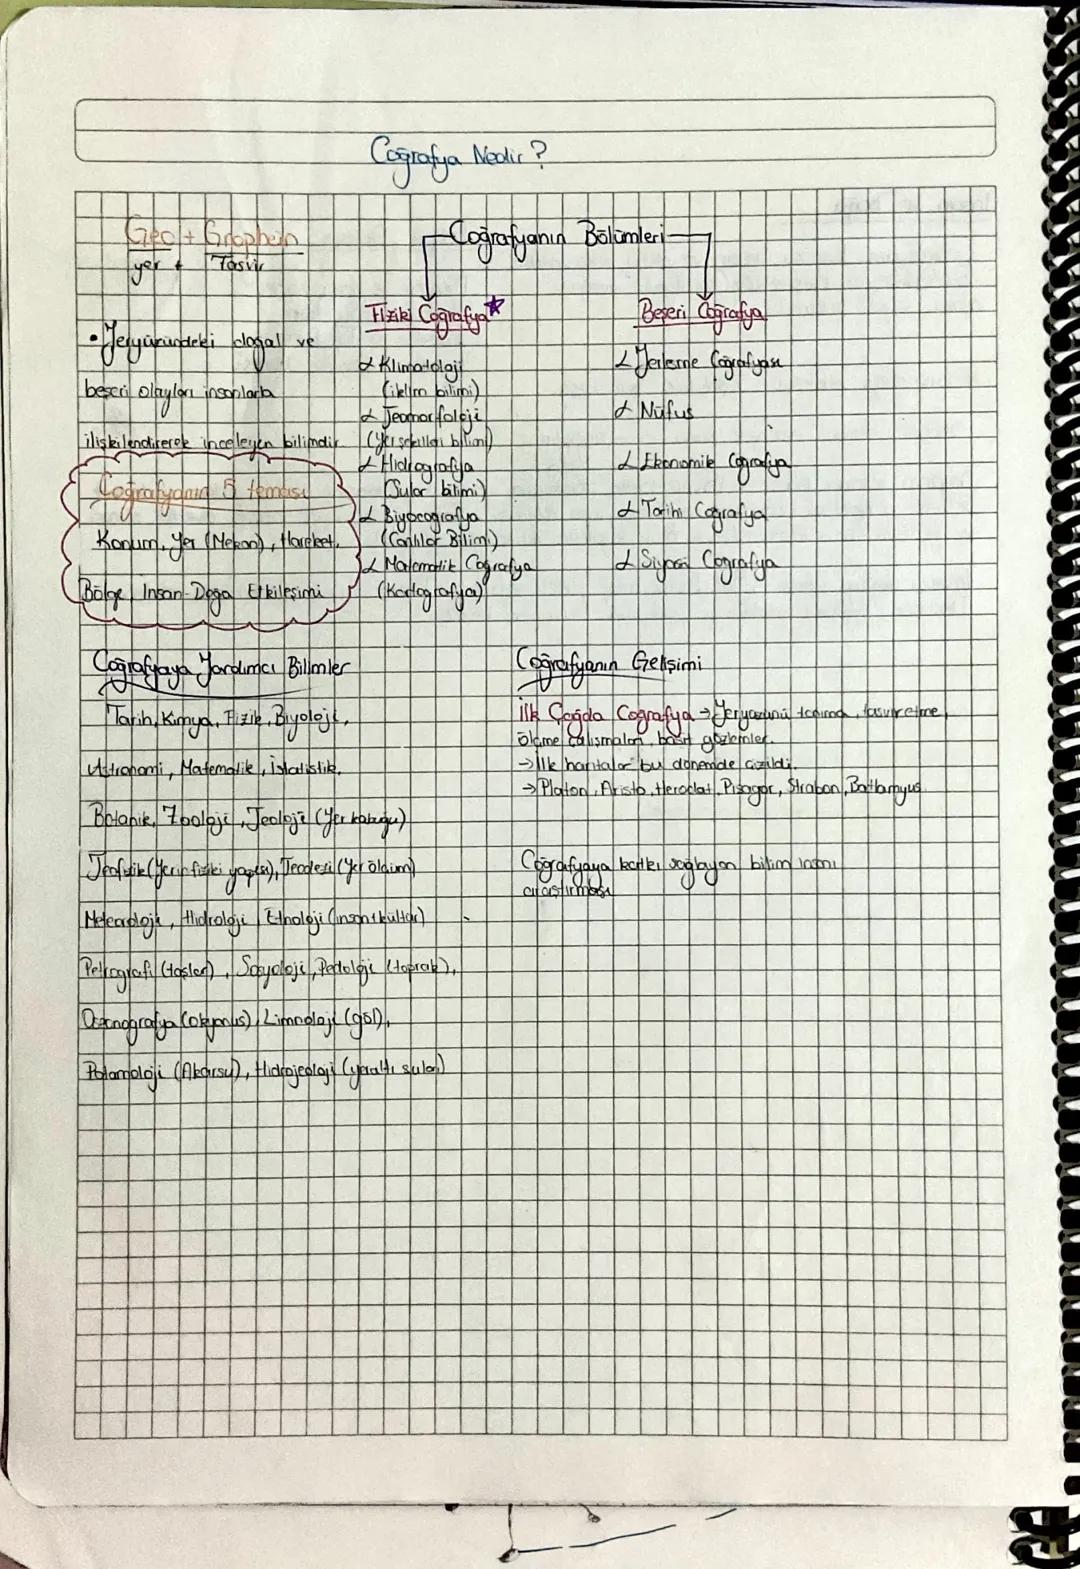 Coğrafya Nedir?
Geo + Graphein
yer + Tasvir
• Yeryüzündeki doğal ve
beşeri olayları insanlarla
ilişkilendirerek inceleyen bilimdir.
Coğrafyanın 5 teması
Konum, Yer (Mekan), Hareket,
Bölge, İnsan-Doğa Etkileşimi
Coğrafyanın Bölümleri
Fiziki Coğrafya
Klimatoloji
(iklim bilimi)
Jeomorfoloji
(Yerşekilleri bilimi)
Hidrografya
(Sular bilimi)
Biyocografya
(Canlılar Bilimi)
Matematik Coğrafya
(Kartografya)
Beşeri Coğrafya
Yerleşme Coğrafyası
Nüfus
Ekonomik Coğrafya
Tarihi Coğrafya
Siyasi Coğrafya
Coğrafyaya Yardımcı Bilimler
Tarih, Kimya, Fizik, Biyoloji,
Astronomi, Matematik, İstatistik,
Botanik, Zooloji, Jeoloji (Yer kabuğu)
Jeofizik (Yerin fiziki yapısı), Jeodezi (Yer ölçüm)
Meteoroloji, Hidroloji, Etnoloji (insan+kültür)
Petrografi (taşlar), Sosyoloji, Pedoloji (toprak),
Ozeanografya (okyanus), Limnoloji (göl),
Potamoloji (Akarsu), Hidrojeoloji (yeraltı suları)
Coğrafyanın Gelişimi
İlk Çağda Coğrafya → Yeryüzünü tanıma, tasvir etme,
ölçme çalışmaları, basit gözlemler.
→ İlk haritalar bu dönemde çizildi.
→ Platon, Aristo, Herodat, Pisagor, Strabon, Batlamyus
Coğrafyaya katkı sağlayan bilim insanı
araştırması